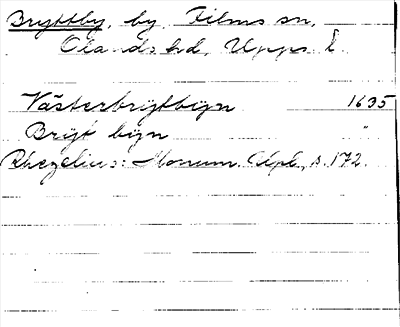 Bryttby, by, Films sn,
Olands hd, Upps. l.
Västerbrytbign 1635
Bryt bign "
Rhezelius: Monum. Upl., s. 172.